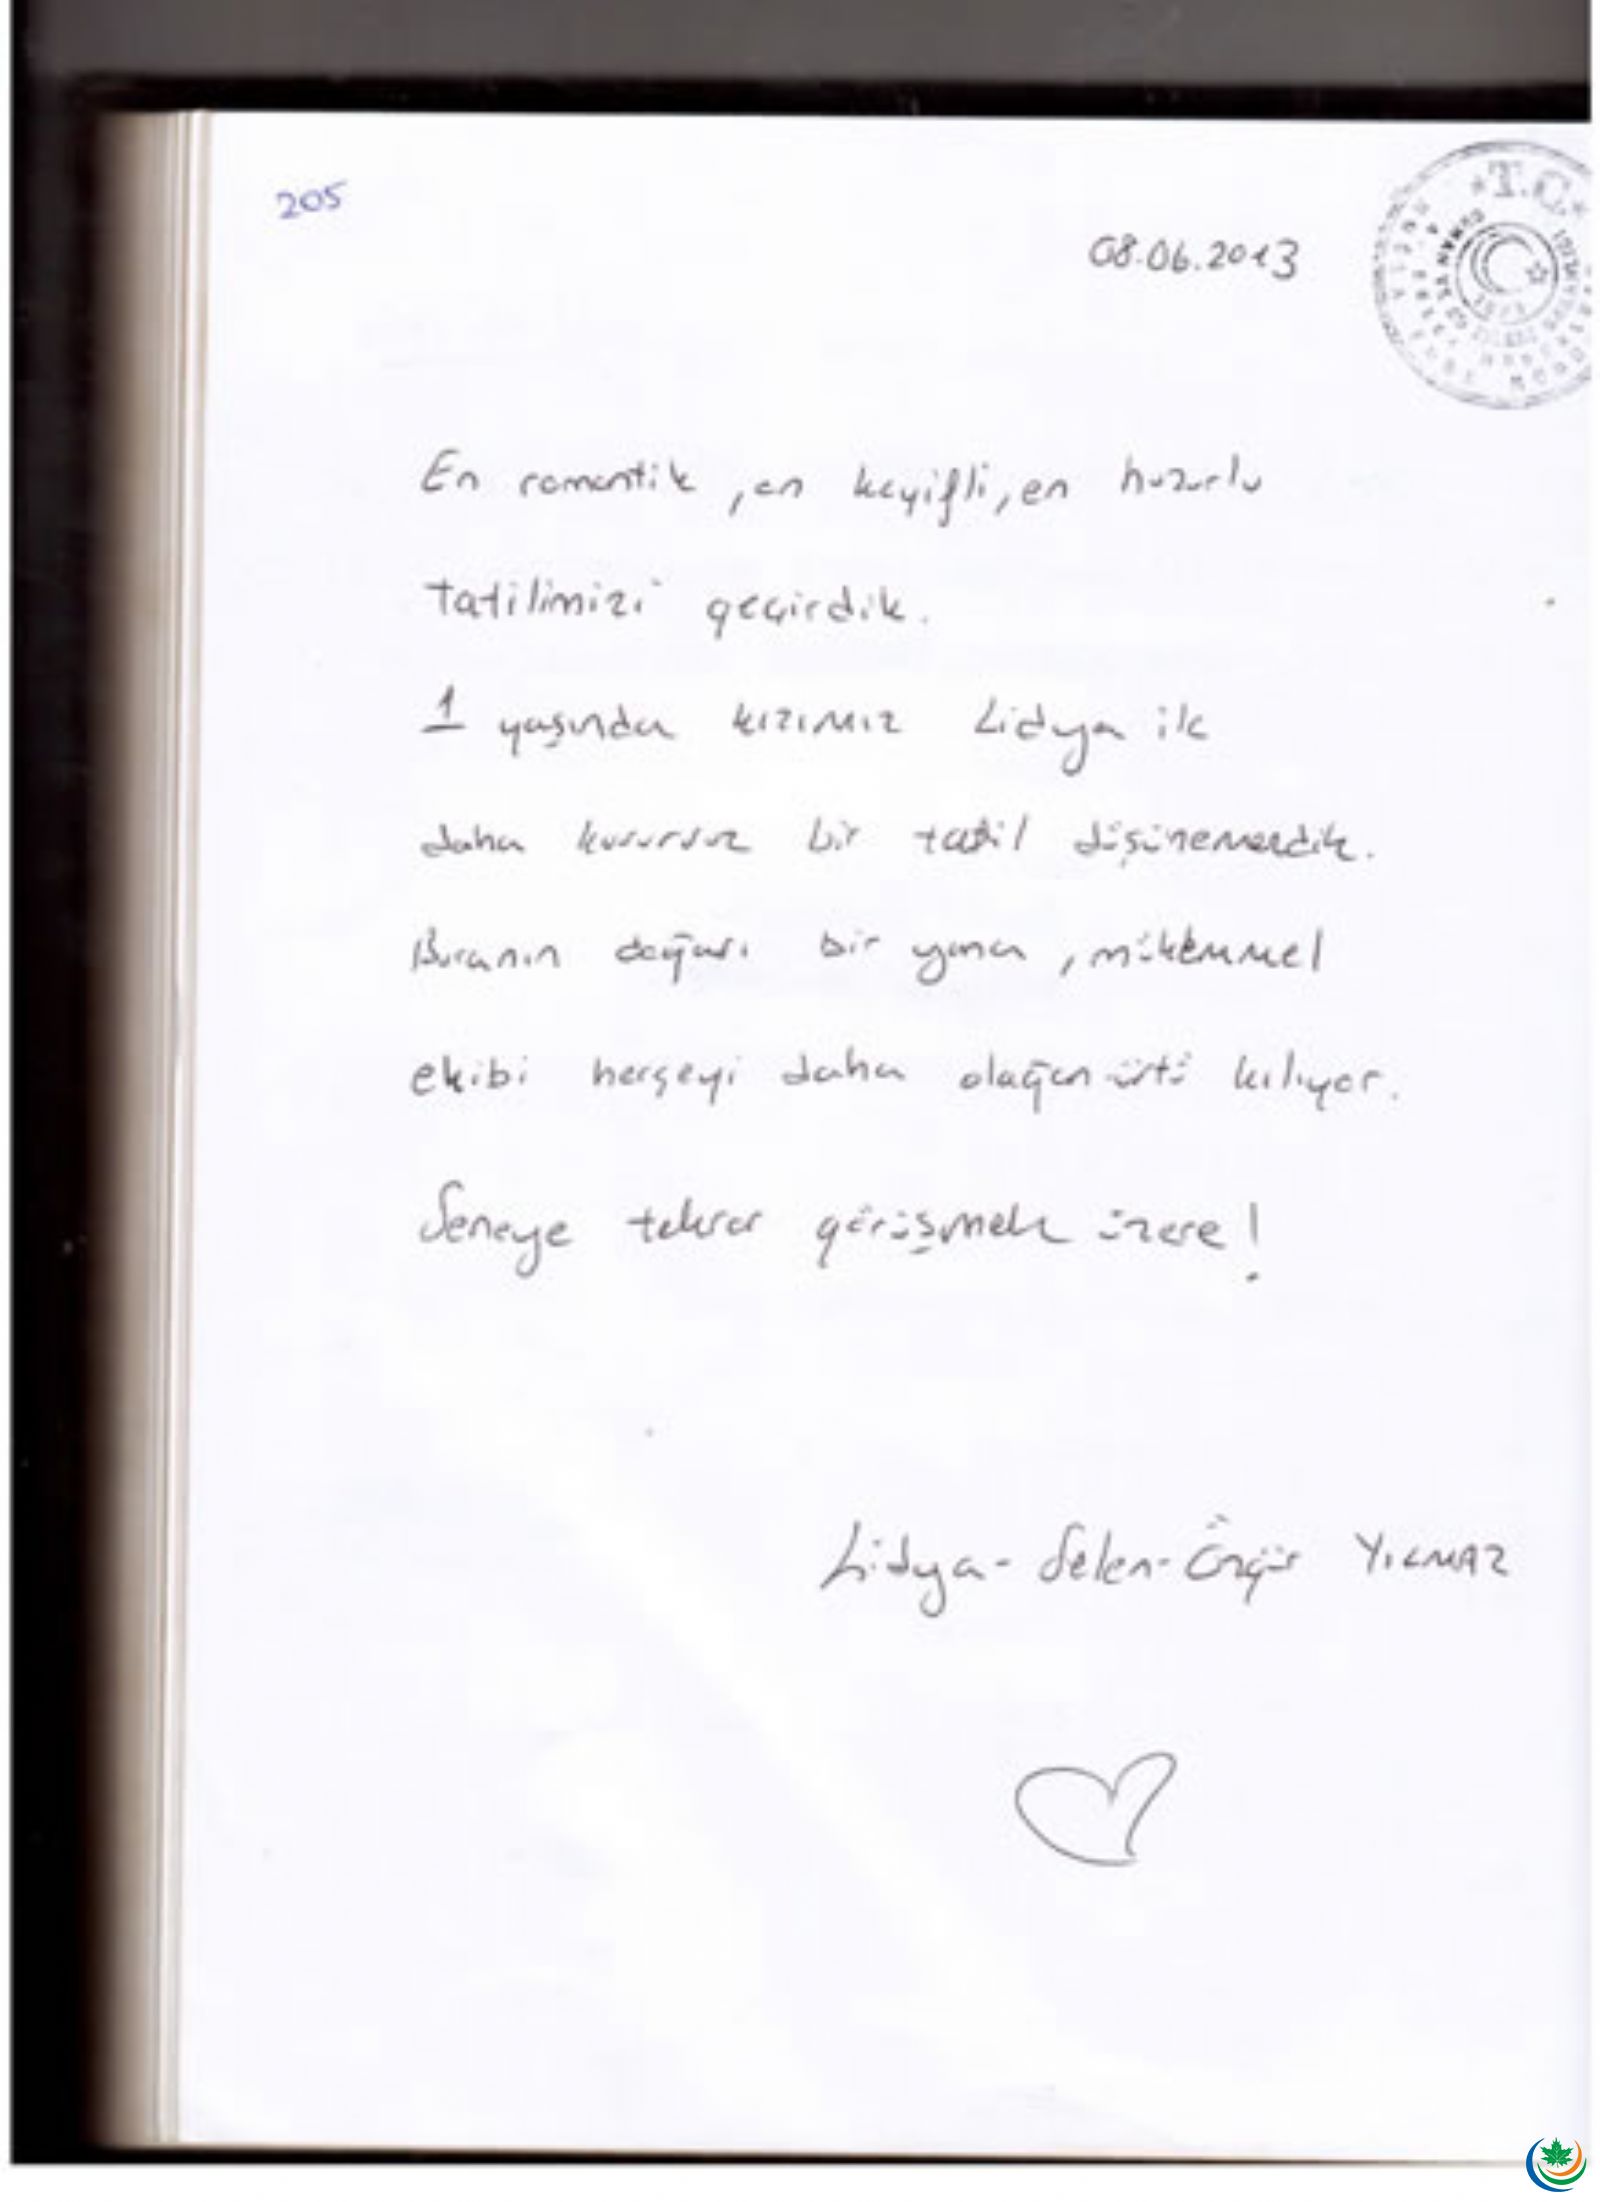 205
08.06.2013
T.C.
En romantik, en keyifli, en huzurlu
tatilimizi geçirdik.
1 yaşında kızımız Lidya ile
daha kusursuz bir tatil düşünemezdik.
Buranın doğası bir yana, mükemmel
ekibi herşeyi daha olağanüstü kılıyor.
Seneye tekrar görüşmek üzere!
Lidya-Selen-Özgür YILMAZ